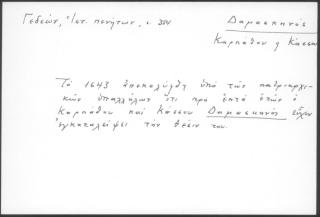 Γεδεών, Ἱστ. πενήτων, σ. 384
Δαμασκηνός
Καρπάθου ἢ Κάσσου
Τὸ 1643 ἀπεκαλύφθη ὑπὸ τῶν πατριαρχι-
κῶν ὑπαλλήλων ὅτι πρὸ ἑπτὰ ἐτῶν ὁ
Καρπάθου καὶ Κάσσου Δαμασκηνὸς εἶχεν
ἐγκαταλείψει τὴν θέσιν του.